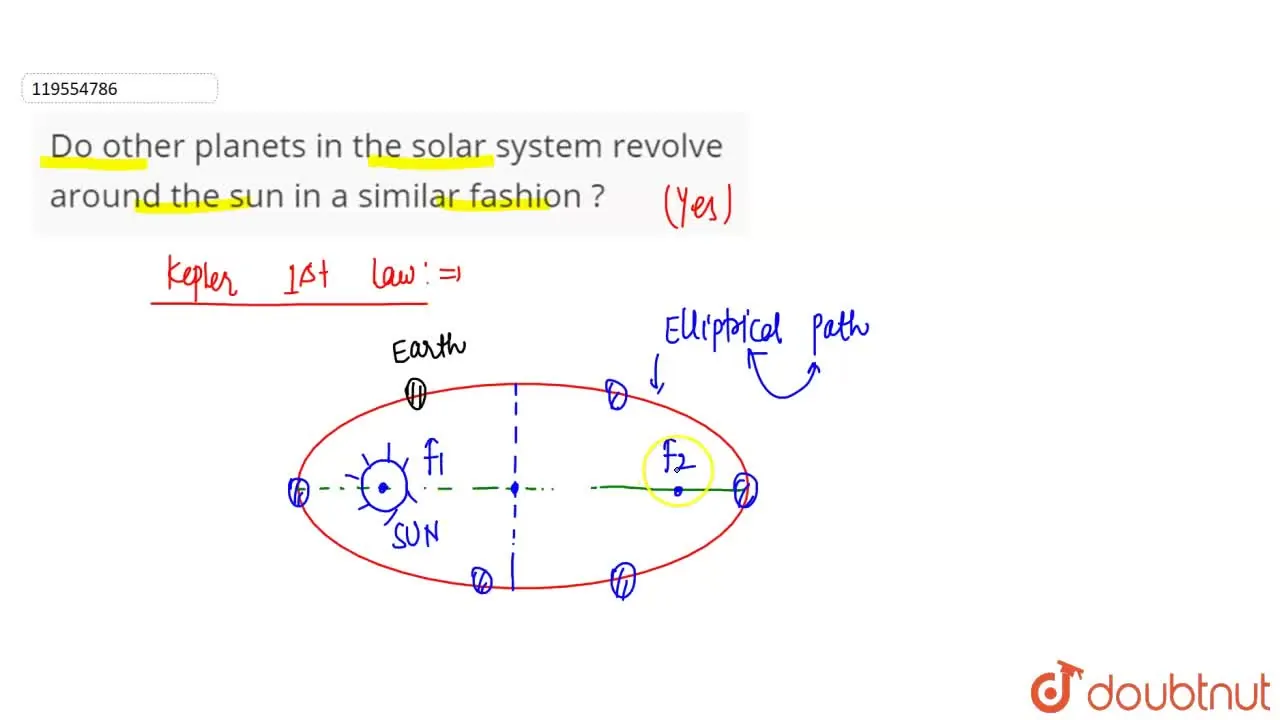 119554786
Do other planets in the solar system revolve
around the sun in a similar fashion ?
(Yes)
Kepler 1st law: ⇒
Elliptical path
Earth
f1
F2
SUN
doubtnut